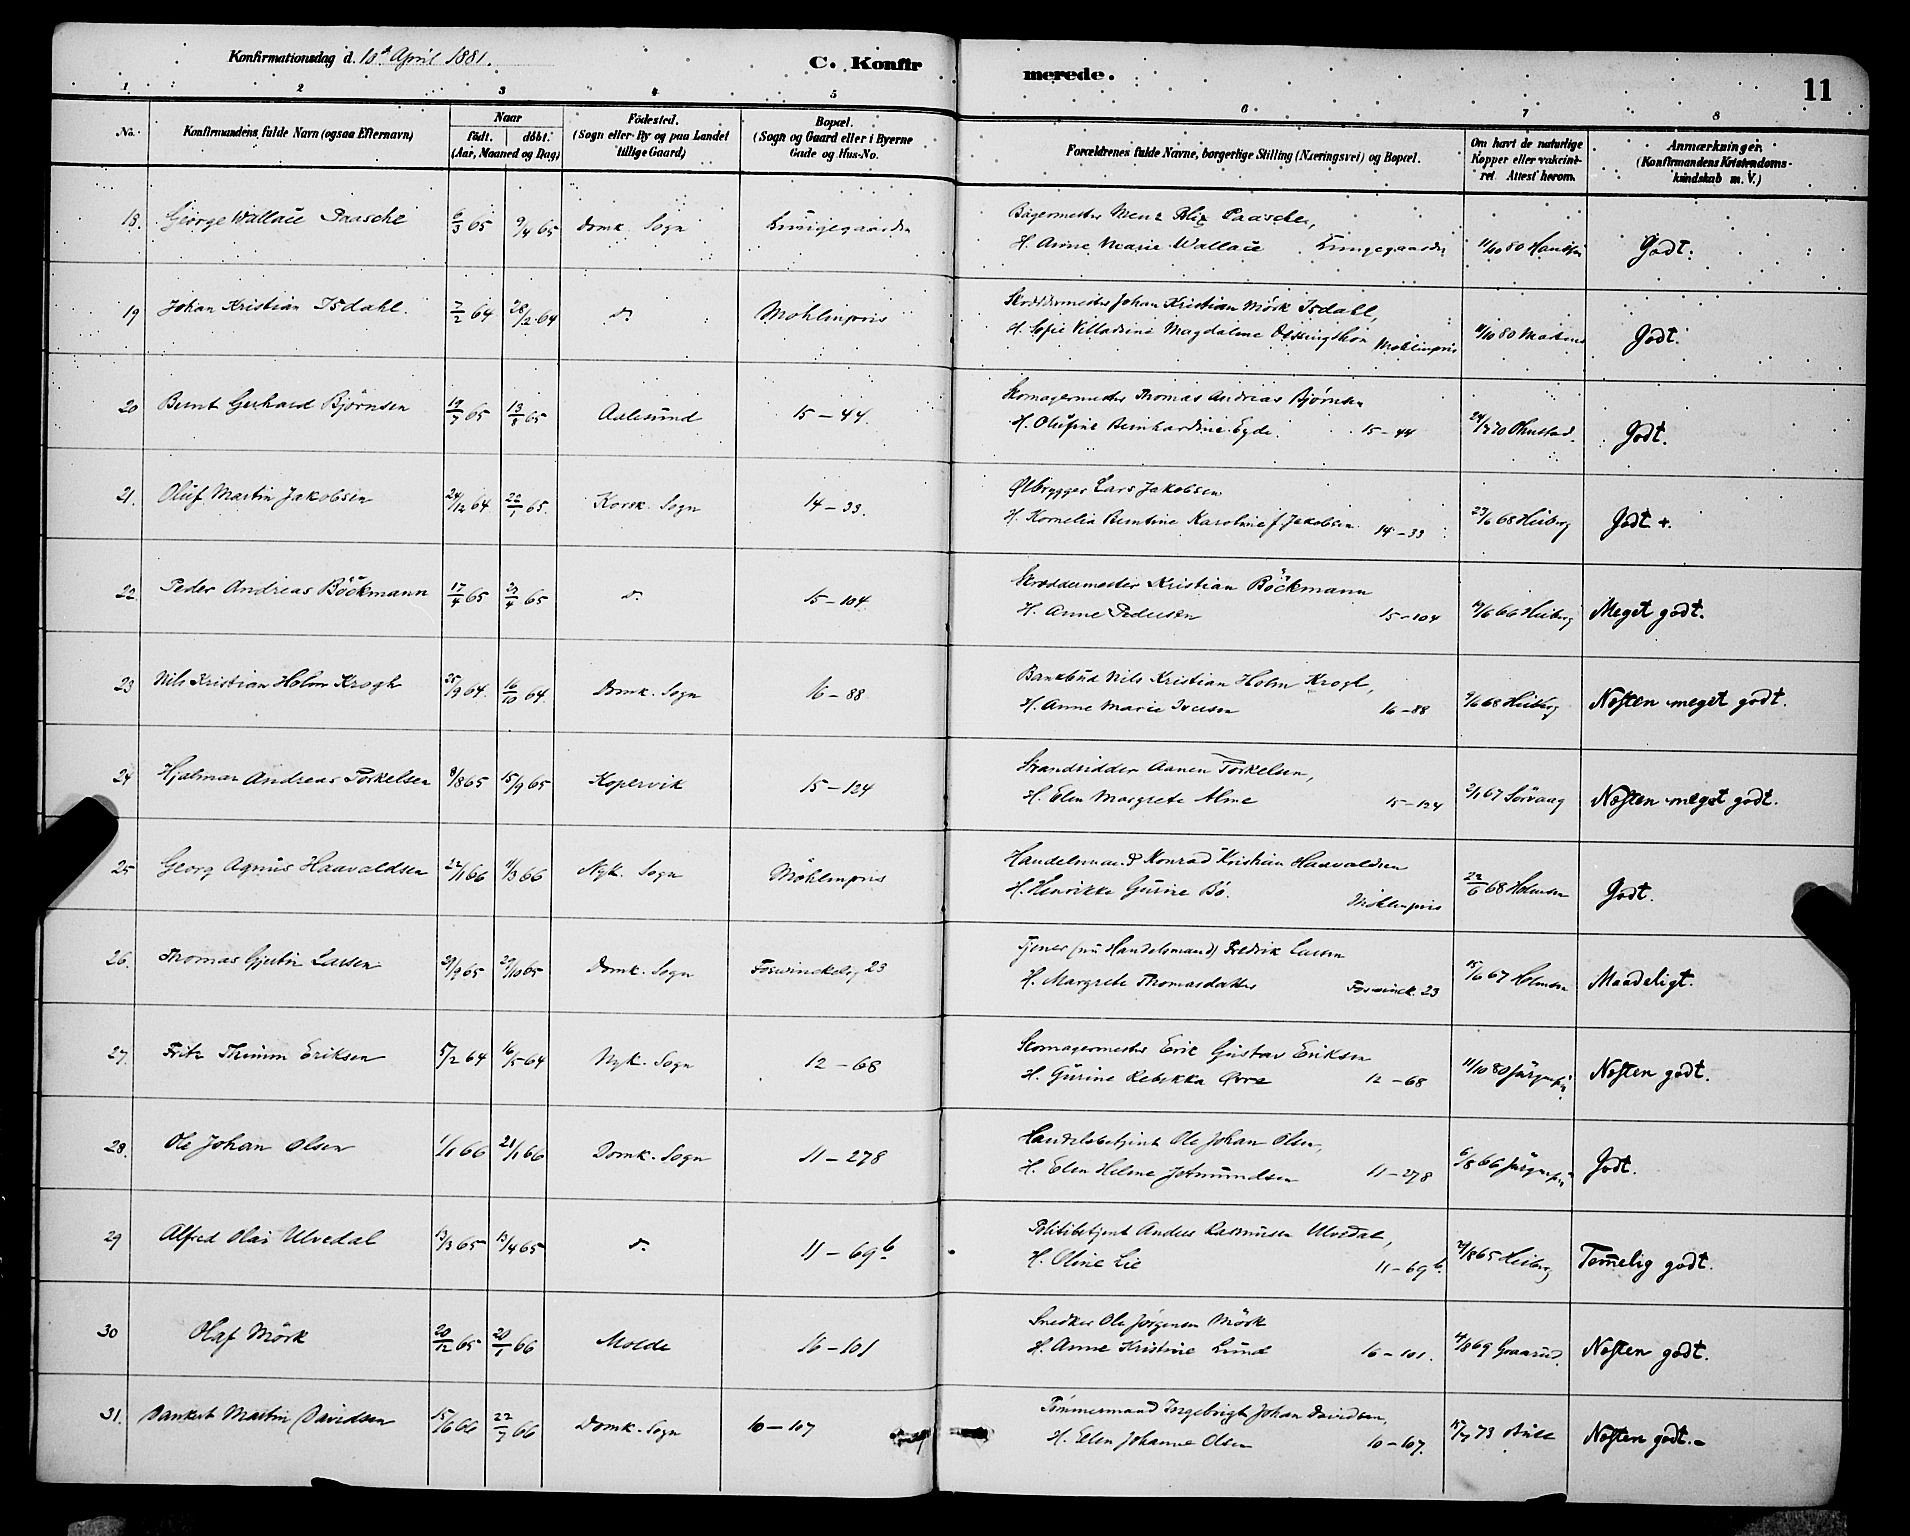 Konfirmationsdag d. 10de April 1881.
C. Konfirmerede.
11
1 2 3 4 5 6 7 8
No. Konfirmandens fulde Navn (ogsaa Efternavn) Naar født. døbt. (Aar, Maaned og Dag) Fødested. (Sogn eller By og paa Landet tillige Gaard) Bopæl. (Sogn og Gaard eller i Byerne Gade og Hus-No. Forældrenes fulde Navne, borgerlige Stilling (Næringsvei) og Bopæl. Om havt de naturlige Kopper eller vaccineret. Attest herom. Anmærkninger. (Konfirmandens Kristendomskundskab m. V.)
18. George Wallace Paasche 6/3 65 9/4 65 Domk. Sogn Lungegaarden Bagermester Menz Blix Paasche, 11/10 80 Godt.
H. Anne Marie Wallace Lungegaarden
19 Johan Kristian Isdahl. 7/2 64 28/2 64 do Møhlenpris Skræddermester Johan Kristian Mörk Isdahl, 11/10 80 Martens Godt.
H. Sofie Villadine Magdalene Møhlenpris
20 Bernt Gerhard Björnsen 19/7 65 13/8 65 Aalesund 15-44. Skomagermester Thomas Andreas Bjørnsen 24/7 70 Godt.
H. Olufine Bernhardine Egde. 15-44
21. Oluf Martin Jakobsen 24/12 64 22/1 65. Korsk. Sogn 14-33. Ølbrygger Lars Jakobsen 23/6 68 Heiberg Godt +.
H. Kornelia Berntine Karoline f Jakobsen 14-33
22. Peder Andreas Böckmann 17/4 65 23/4 65 do 15-104. Skræddermester Kristian Böckmann 14/6 66 Heiberg Meget godt.
H. Anne Pedersen 15-104
23 Nils Kristian Holm Krogh 25/9 64. 16/10 64. Domk. Sogn 16-88 Bankbud Nils Kristian Holm Krogh, 9/6 68 Heiberg Næsten meget godt.
H. Anne Marie Iversen 16-88
24 Hjalmar Andreas Torkelsen 8/8 65 15/9 65 Kopervik 15-124 Strandridder Aanen Torkelsen, 2/1 67 Sörvaag Næsten meget godt.
H. Elen Margrete Alme 15-124
25 Georg Agnus Haavaldsen 22/1 66 11/3 66 Nyk. Sogn Møhlenpris Handelsmand Konrad Kristian Haavaldsen 22/6 68 Holmsen Godt.
H. Henrikke Gurine Bö. Møhlenpris
26. Thomas Gjertin Larsen 29/9 65 29/10 65 Domk. Sogn Foswinckelsg 23 Tjener (nu Handelsmand) Fredrik Larsen 15/6 67 Holmsen Maadeligt.
H. Margrete Thomasdatter Foswinck. 23
27. Fritz Thimm Eriksen 5/2 64 16/5 64 Nyk. Sogn 12-68 Skomagermester Erik Gustav Eriksen 11/10 80 Næsten godt.
H. Gurine Rebekka Øvre 12-68
28. Ole Johan Olsen 1/1 66 21/1 66 Domk. Sogn 11-278 Handelsbetjent Ole Johan Olsen, 6/8 66 Godt.
H. Elen Helene Jetmundsen 11-278
29 Alfred Olai Ulvedal 13/3 65 13/4 65 do 11-69b Politibetjent Anders Rasmussen Ulvedal, 21/8 65 Heiberg Temmelig godt.
H. Oline Lie 11-69b.
30 Olaf Mörk 20/12 65 20/1 66 Molde 16-101 Snedker Ole Jørgensen Mörk 4/8 69 Graarud. Næsten godt.
H. Anne Kristine Lund 16-101.
31. Dankert Martin Davidsen 15/6 66 22/7 66 Domk. Sogn 10-107 Tømmermand Ingebrigt Johan Davidsen, 15/7 73 Bull Næsten godt.-
H. Elen Johanne Olsen 10-107.